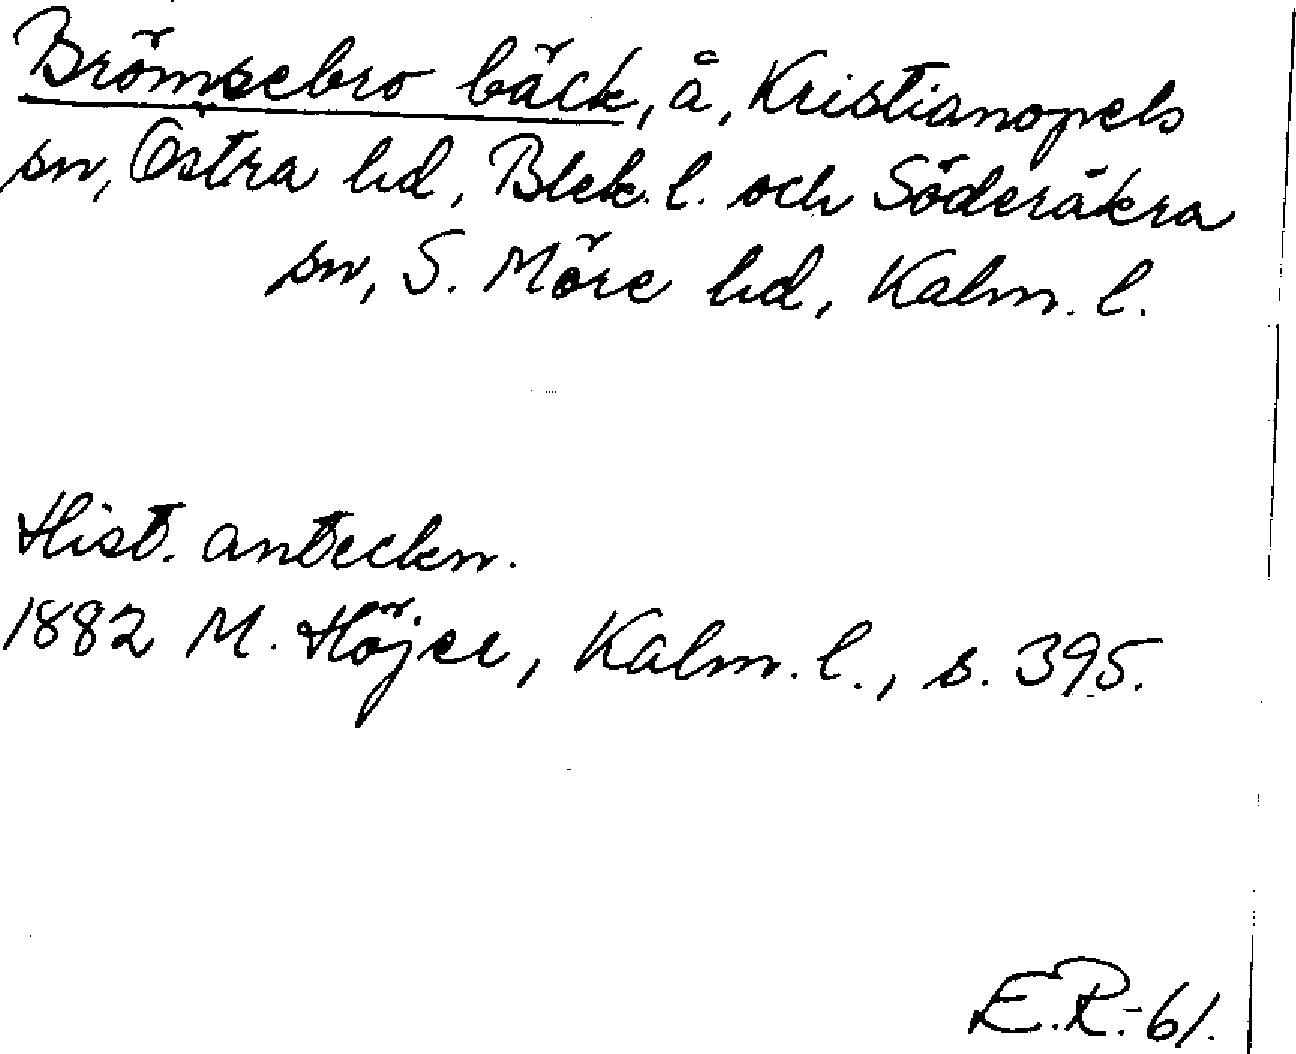 Brömsebro bäck, å, Kristianopels
sn, Östra hd, Blek. l. och Söderåkra
sn, S. Möre hd, Kalm. l.
Hist. anteckn.
1882 M. Höjer, Kalm. l., s. 395.
E.R.-61.